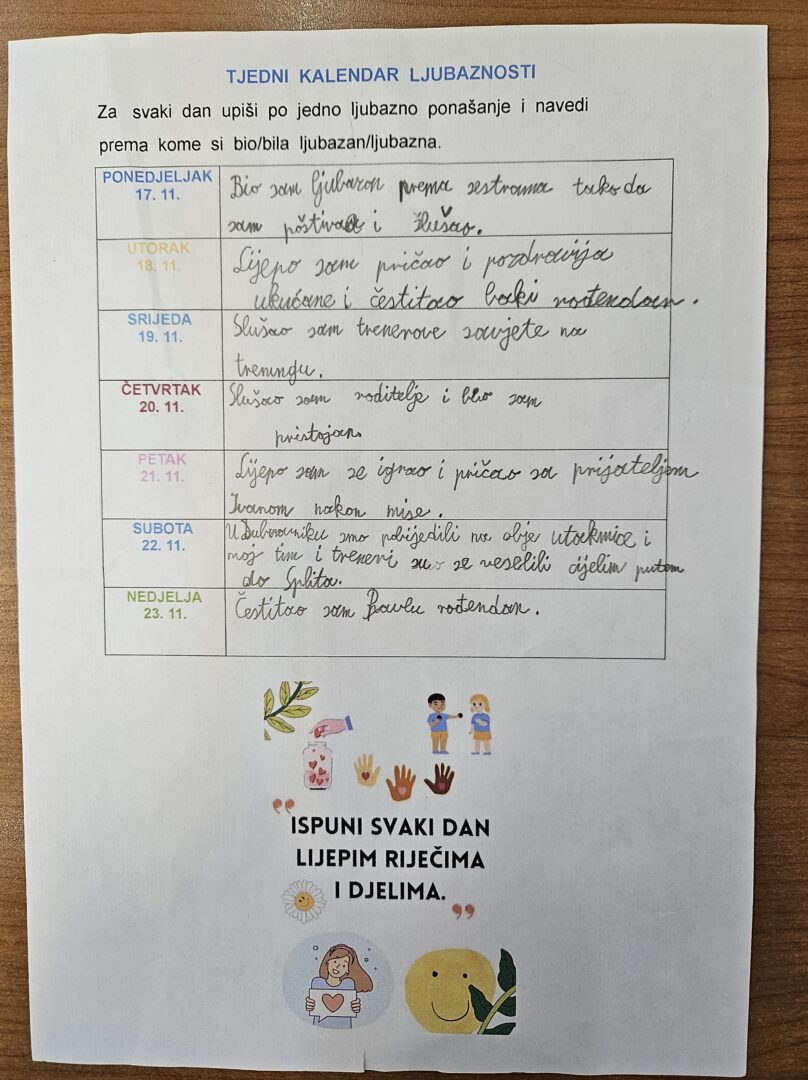 TJEDNI KALENDAR LJUBAZNOSTI
Za svaki dan upiši po jedno ljubazno ponašanje i navedi
prema kome si bio/bila ljubazan/ljubazna.
PONEDJELJAK
17. 11.
Bio sam ljubazan prema sestrama tako da
sam poštivao i slušao.
UTORAK
18. 11.
Lijepo sam pričao i pozdravlja
ukućane i čestitao baki rođendan.
SRIJEDA
19. 11.
Slušao sam trenerove savjete na
treningu.
ČETVRTAK
20. 11.
Slušao sam roditelje i bio sam
pristojan.
PETAK
21. 11.
Lijepo sam se igrao i pričao sa prijateljem
Ivanom nakon mise.
SUBOTA
22. 11.
U Dubrovniku smo pobijedili na obje utakmice i
moj tim i treneri smo se veselili cijelim putem
do Splita.
NEDJELJA
23. 11.
Čestitao sam Pavlu rođendan.
ISPUNI SVAKI DAN
LIJEPIM RIJEČIMA
I DJELIMA.